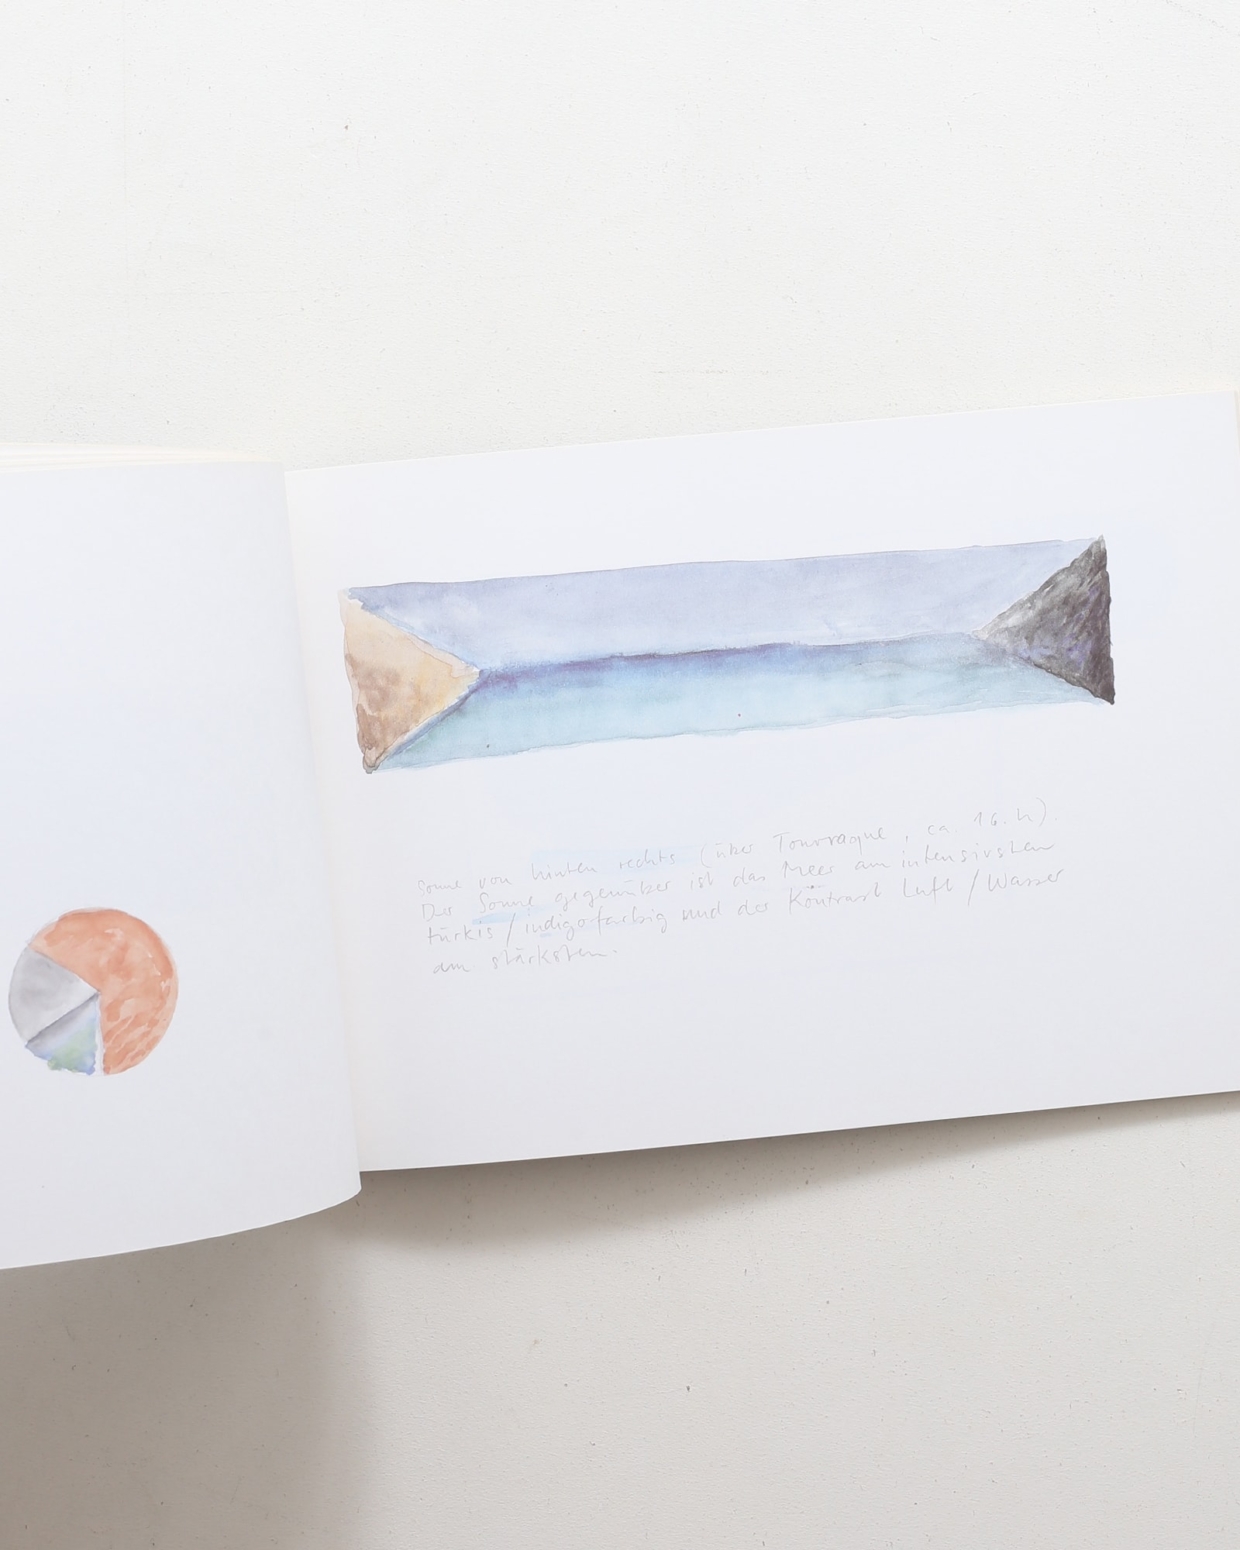 Sonne von hinten rechts (über Tourraque, ca. 16. h).
Der Sonne gegenüber ist das Meer am intensivsten
türkis / indigofarbig und der Kontrast Luft / Wasser
am stärksten.